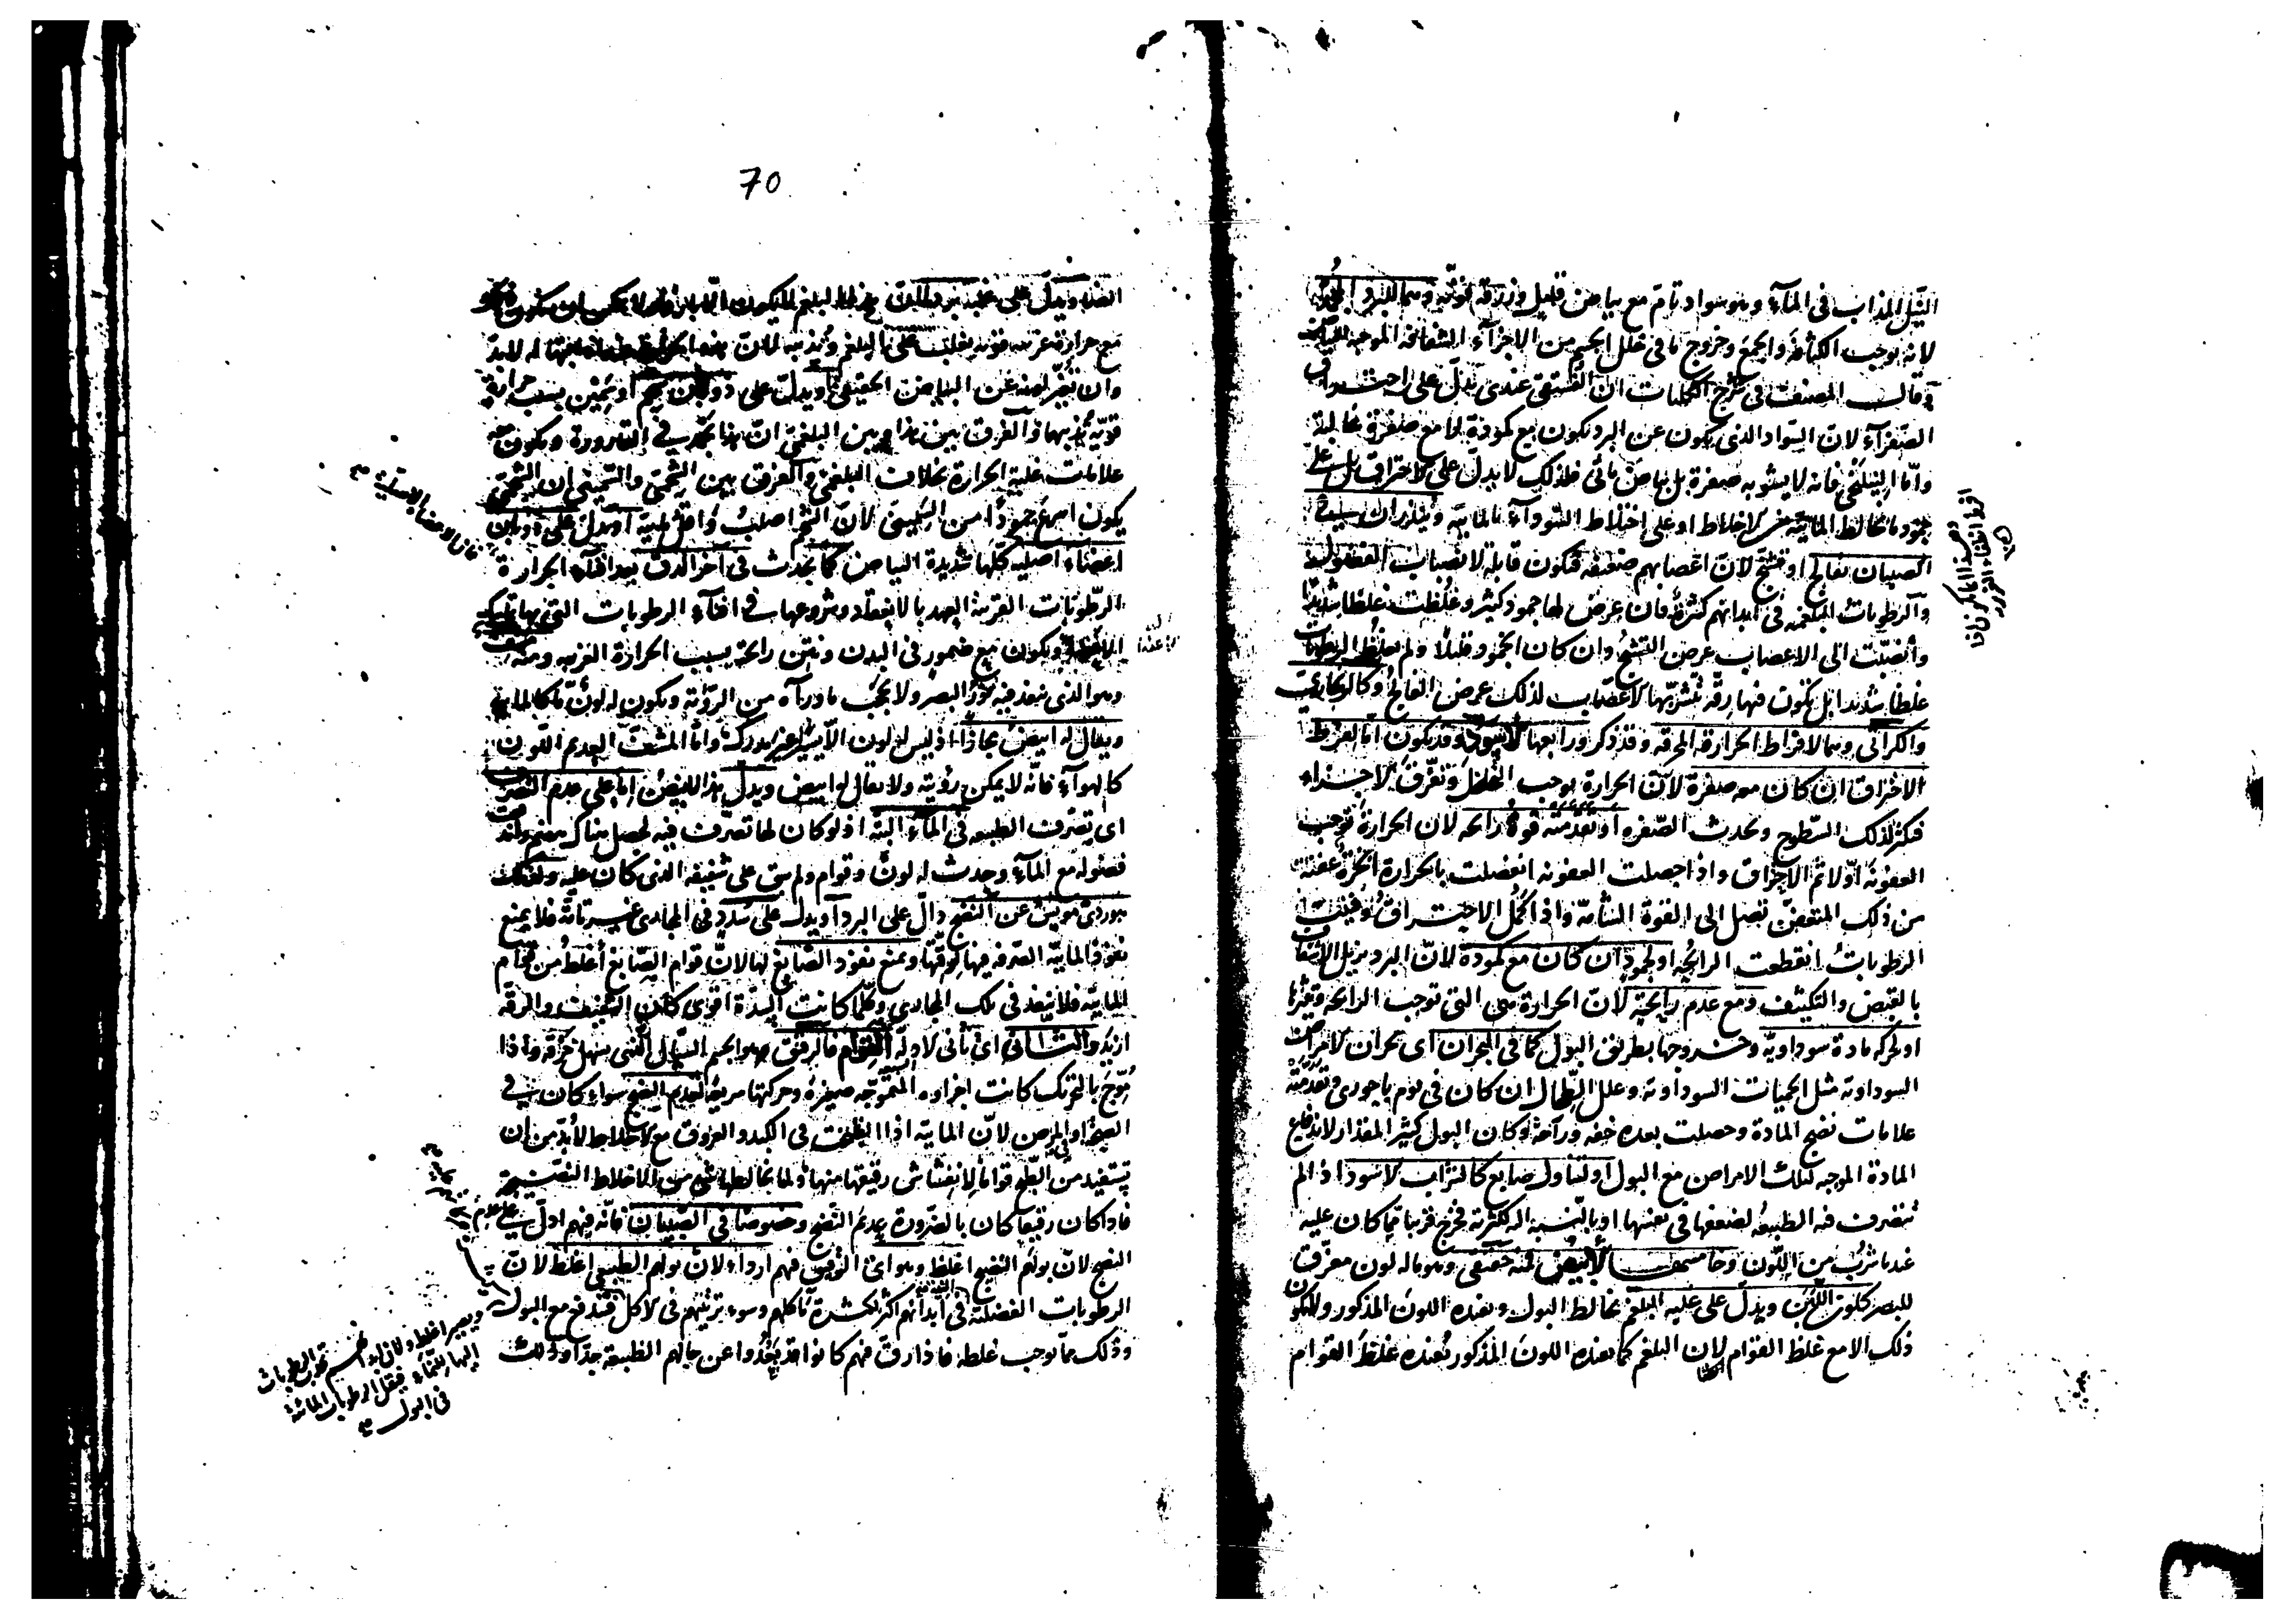 النيل المذاب فى المآء وهو سواد تام مع بياض قليل وزرقة قوية وهما للبرد المجمد
لانه يوجب الكثافة والجمع وخروج ما فى خلل الجسم من الاجزآء الشفافة الموجبة للبياض
وقال المصنف فى شرح الكليات ان الفستقى عندى يدل على احتراق
الصفرآء لان السواد الذى يكون عن البرد يكون مع كمودة لا مع صفرة غالبة
واما النيلنجى فانه لا يشوبه صفرة بل بياض مائى فلذلك لا يدل على الاحتراق بل على
جمود ما يخالط المائية من الاخلاط او على اختلاط السودآء بالمائية وينذران فى
الصبيان بفالج او تشنج لان اعصابهم ضعيفة فتكون قابلة لانصباب الفضول
والرطوبات البلغمية فى ابدانهم كثيرة فان عرض لها جمود كثير وغلظت غلظا شديدا
وانصبت الى الاعصاب عرض التشنج وان كان الجمود قليلا ولم تغلظ الرطوبات
غلظا شديدا بل تكون فيها رقة تشربها الاعصاب لذلك عرض الفالج وكالزنجارى
والكراثى وهما لافراط الحرارة المحرقة وقد ذكر ورابعها الاسود وقد يكون اما لفرط
الاحتراق ان كان معه صفرة لان الحرارة يوجب التخلخل وتفرق الاجزاء
فتكثر لذلك السطوح وتحدث الصفرة او تقدمته قوة رائحة لان الحرارة توجب
العفونة اولا ثم الاحتراق واذا حصلت العفونة انفصلت بالحرارة ابخرة عفنة
من ذلك المتعفن تصل الى القوة الشامة واذا كمل الاحتراق وفنيت
الرطوبات انقطعت الرائحة او لجمود ان كان مع كمودة لان البرد يزيل الاشفاف
بالقبض والتكثيف ومع عدم رائحة لان الحرارة هى التى توجب الرائحة وتثيرها
او لحركة مادة سوداوية وخروجها بطريق البول كما فى البحران اى بحران الامراض
السوداوية مثل الحميات السوداوية وعلل الطحال ان كان فى يوم باحورى وتقدمته
علامات نضج المادة وحصلت بعده خفة وراحة وكان البول كثير المقدار لاندفاع
المادة الموجبة لتلك الامراض مع البول او لتناول صابغ كالشراب الاسود اذ لم
تتصرف فيه الطبيعة لضعفها فى نفسها او بالنسبة اليه لكثرته فخرج قريبا مما كان عليه
عند ما شرب من اللون وخامسها الابيض فمنه حقيقى وهو ما له لون مفرق
للبصر كلون اللبن ويدل على غلبة البلغم يخالط البول ويفيده اللون المذكور ولا يكون
ذلك الا مع غلظ القوام لان البلغم كما يفيده اللون المذكور يفيده غلظ القوام
70
ايضا ويدل على غلبة برد
مع حرارة غريبة قوية
وان تغير لونه عن البياض الحقيقى او يدل على ذوبان شحم او سمين بسبب حرارة
قوية تذيبها والفرق بين هذا وبين البلغمى ان هذا يجمد فى القارورة ويكون معه
علامات غلبة الحرارة بخلاف البلغمى والفرق بين الشحمى والسمينى ان الشحمى
يكون اسرع جمودا من السمينى لان الشحم اصلب واقل مائية او يدل على ذوبان
اعضاء اصلية كلها شديدة البياض كما يحدث فى آخر الدق بعد افناء الحرارة
الرطوبات القريبة العهد بالانعقاد وشروعها فى افنآء الرطوبات التى بها تماسك
الاعضاء ويكون مع ضمور فى البدن ونتن رائحة بسبب الحرارة الغريبة ومنه مشف
وهو الذى ينفذ فيه نور البصر ولا يحجب ما ورآه من الرؤية ويكون له لون ما كالماء
ويقال له ابيض مجازا اذ ليس له لون الابيض غير مدركة واما المشف العديم اللون
كالهوآء فانه لا يمكن رؤيته ولا يقال له ابيض ويدل هذا الابيض اما على عدم التصرف
اى تصرف الطبيعة فى المآء البتة اذ لو كان لها تصرف فيه لحصل هناك هضم واندفعت
فضوله مع المآء وحدث له لون وقوام ولم يبق على شفيفه الذى كان عليه ولذلك
هو ردى مويس عن النضج دال على البرد او يدل على سدد فى المجارى غير تامة فلا يمنع
نفوذ المائية الصرفة فيها لرقتها ويمنع نفوذ الصابغ لها لان قوام الصابغ اغلظ من قوام
المائية فلا ينفذ فى تلك المجارى وكلما كانت السدة اقوى كان الشفيف والرقة
ازيد والثانى اى ثانى الادلة القوام فالرقيق هو الجسم السيال الذى يسهل خرقه واذا
موج بالتحريك كانت اجزاوه المتموجة صغيرة وحركتها سريعة لعدم النضج سواء كان فى
الصحة او المرض لان المائية اذا انطبخت فى الكبد والعروق مع الاخلاط لا بد من ان
تستفيد من الطبخ قواما لانفشاش رقيقها منها ولما يخالطها شئ من الاخلاط النضيجة
فاذا كان رقيقا كان بالضرورة عديم النضج وخصوصا فى الصبيان فانه فيهم ادل على عدم
النضج لان بولهم النضيج اغلظ وهو اى الرقيق فيهم اردأ لان بولهم الطبيعى اغلظ لان
الرطوبات الفضلية فى ابدانهم اكثر لكثرة اكلهم وسوء ترتيبهم فى الاكل فتندفع مع البول
وذلك مما يوجب غلظه فاذا رق فيهم كانوا قد بعدوا عن حالهم الطبيعة جدا وذلك
ويصير اغلظ
فى البول